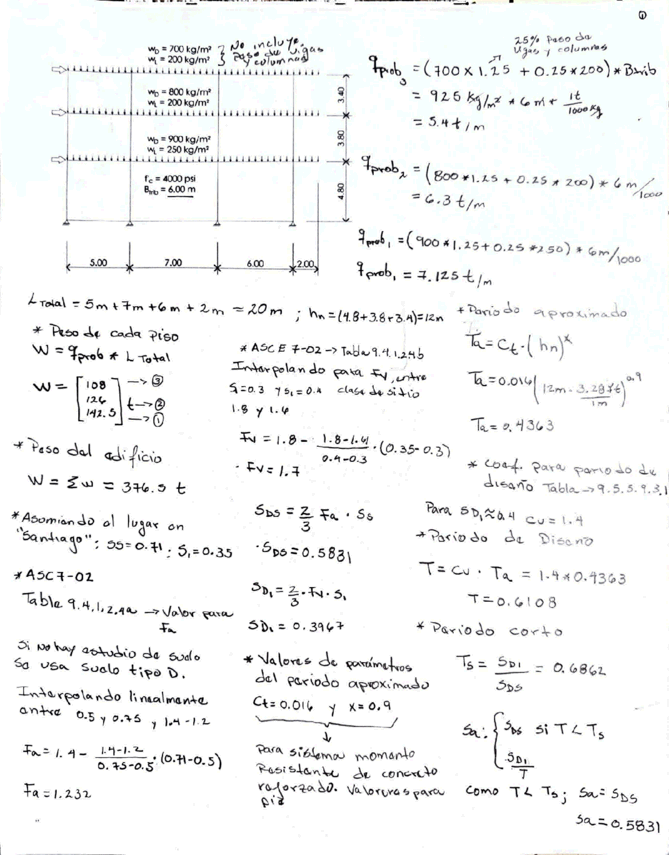 ①
w_D = 700 kg/m²
w_L = 200 kg/m²
No incluye
Peso de vigas
y columnas
w_D = 800 kg/m²
w_L = 200 kg/m²
w_D = 900 kg/m²
w_L = 250 kg/m²
f'c = 4000 psi
B_trib = 6.00 m
3.40
3.80
4.80
5.00 7.00 6.00 2.00
25% Peso de
vigas y columnas
q_prob₃ = (700 x 1.25 + 0.25 * 200) * Btrib
= 925 kg/m² * 6m * 1t/1000kg
= 5.4 t/m
q_prob₂ = (800 * 1.25 + 0.25 * 200) * 6m/1000
= 6.3 t/m
q_prob₁ = (900 * 1.25 + 0.25 * 250) * 6m/1000
q_prob₁ = 7.125 t/m
L Total = 5m + 7m + 6m + 2m = 20m ; hn = (4.8+3.8+3.4)=12m
* Peso de cada Piso
W = q_prob * L Total
W = [108 → ③
126 t → ②
142.5] → ①
* Peso del edificio
W = Σw = 376.5 t
* Asumiendo el lugar en
"Santiago"; SS=0.71; S₁=0.35
* ASC7-02
Table 9.4.1.2.4a → Valor para
Fa
Si no hay estudio de suelo
Se usa suelo tipo D.
Interpolando linealmente
entre 0.5 y 0.75 y 1.4-1.2
Fa = 1.4 - (1.4-1.2)/(0.75-0.5) · (0.71-0.5)
Fa = 1.232
* ASCE 7-02 → Table 9.4.1.2.4b
Interpolando para Fv, entre
S₁=0.3 y S₁=0.4 clase de sitio
1.8 y 1.6
Fv = 1.8 - (1.8-1.6)/(0.4-0.3) · (0.35-0.3)
· Fv = 1.7
S_DS = 2/3 Fa · Ss
· S_DS = 0.5831
S_D₁ = 2/3 · Fv · S₁
S_D₁ = 0.3967
* Valores de parámetros
del periodo aproximado
Ct = 0.016 y x = 0.9
↓
Para sistema momento
Resistente de concreto
reforzado. Valores para
pie
* Periodo aproximado
Ta = Ct · (hn)^x
Ta = 0.016 (12m · 3.28ft/1m)^0.9
Ta = 0.4363
* Coef. para periodo de
diseño Tabla → 9.5.5.3.1
Para SD₁ ≈ 0.4 Cu = 1.4
* Periodo de Diseño
T = Cu · Ta = 1.4 * 0.4363
T = 0.6108
* Periodo corto
Ts = S_D1/S_DS = 0.6862
Sa: { S_DS si T < Ts
S_D1/T
como T < Ts; Sa = S_DS
Sa = 0.5831